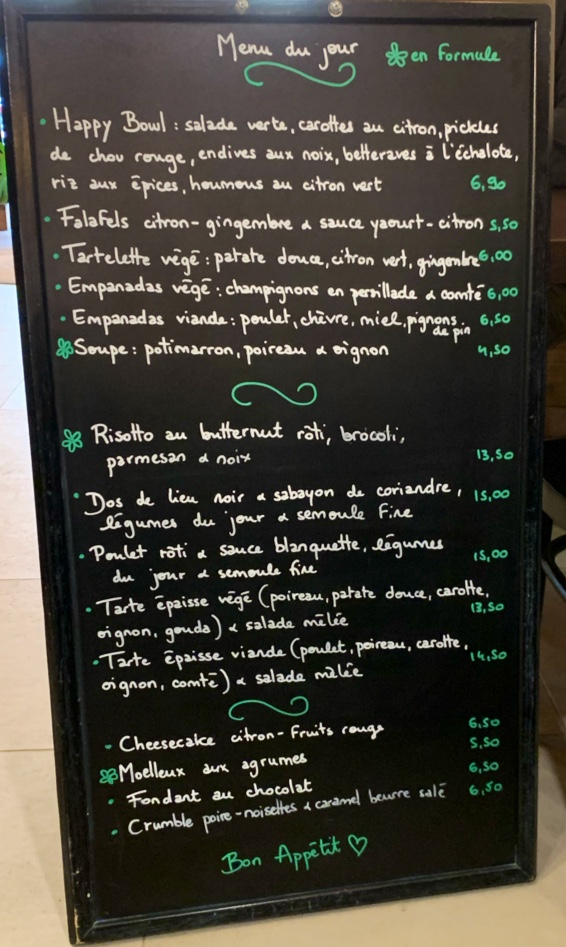 Menu du jour ❀ en Formule
• Happy Bowl : salade verte, carottes au citron, pickles
de chou rouge, endives aux noix, betteraves à l'échalote,
riz aux épices, houmous au citron vert 6,90
• Falafels citron-gingembre & sauce yaourt-citron 5,50
• Tartelette végé : patate douce, citron vert, gingembre 6,00
• Empanadas végé : champignons en persillade & comté 6,00
• Empanadas viande : poulet, chèvre, miel, pignons 6,50
de pin
❀ Soupe : potimarron, poireau & oignon 4,50
❀ Risotto au butternut rôti, brocoli,
parmesan & noix 13,50
• Dos de lieu noir & sabayon de coriandre, 15,00
légumes du jour & semoule fine
• Poulet rôti & sauce blanquette, légumes 15,00
du jour & semoule fine
• Tarte épaisse végé (poireau, patate douce, carotte, 13,50
oignon, gouda) & salade mêlée
• Tarte épaisse viande (poulet, poireau, carotte, 14,50
oignon, comté) & salade mêlée
• Cheesecake citron-fruits rouge 6,50
❀ Moelleux aux agrumes 5,50
• Fondant au chocolat 6,50
• Crumble poire-noisettes & caramel beurre salé 6,50
Bon Appétit ♡